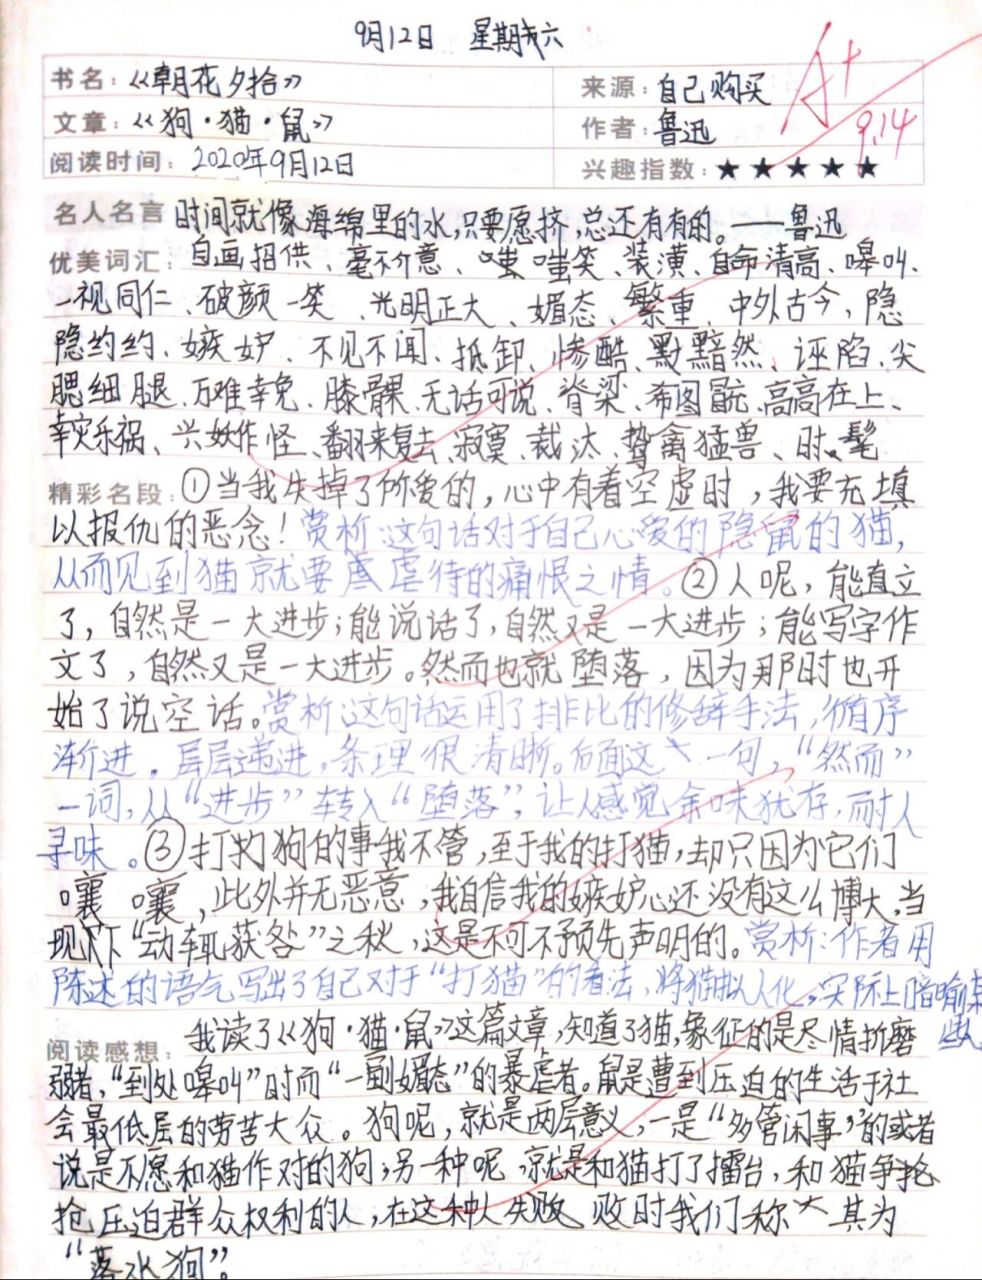 9月12日 星期六
书名：《朝花夕拾》 来源：自己购买
A+
文章：《狗·猫·鼠》 作者：鲁迅
9.14
阅读时间：2020年9月12日 兴趣指数：★★★★★
名人名言 时间就像海绵里的水,只要愿挤,总还有有的。——鲁迅
优美词汇：自画招供、毫不介意、嗤嗤笑、装潢、自命清高、嗥叫、
一视同仁、破颜一笑、光明正大、媚态、繁重、中外古今、隐
隐约约、嫉妒、不见不闻、抵御、惨酷、黔黯然、诬陷、尖
腮细腿、万难幸免、膝髁、无话可说、脊梁、希图、高高在上、
幸灾乐祸、兴妖作怪、翻来复去、寂寞、裁汰、鸷禽猛兽、时髦
精彩名段：①当我失掉了所爱的，心中有着空虚时，我要充填
以报仇的恶念！赏析：这句话对于自己心爱的隐鼠的猫，
从而见到猫就要虐待的痛恨之情。②人呢，能直立
了，自然是一大进步；能说话了，自然又是一大进步；能写字作
文了，自然又是一大进步。然而也就堕落，因为那时也开
始了说空话。赏析：这句话运用了排比的修辞手法，循序
渐进，层层递进，条理很清晰。后面这一句，“然而”
一词，从“进步”转入“堕落”，让人感觉余味犹存，而耐人
寻味。③打狗的事我不管，至于我的打猫，却只因为它们
嚷嚷，此外并无恶意，我自信我的嫉妒心还没有这么博大，当
现下“动辄获咎”之秋，这是不可不预先声明的。赏析：作者用
陈述的语气写出了自己对于“打猫”的看法，将猫拟人化，实际上暗喻某
些人
阅读感想：我读了《狗·猫·鼠》这篇文章，知道了猫，象征的是尽情折磨
弱者，“到处嗥叫”时而“一副媚态”的暴虐者。鼠是遭到压迫的生活于社
会最低层的劳苦大众。狗呢，就是两层意义，一是“多管闲事”的或者
说是不愿和猫作对的狗，另一种呢，就是和猫打了擂台，和猫争抢
抢压迫群众权利的人，在这种人失败败时我们称其为
“落水狗”。